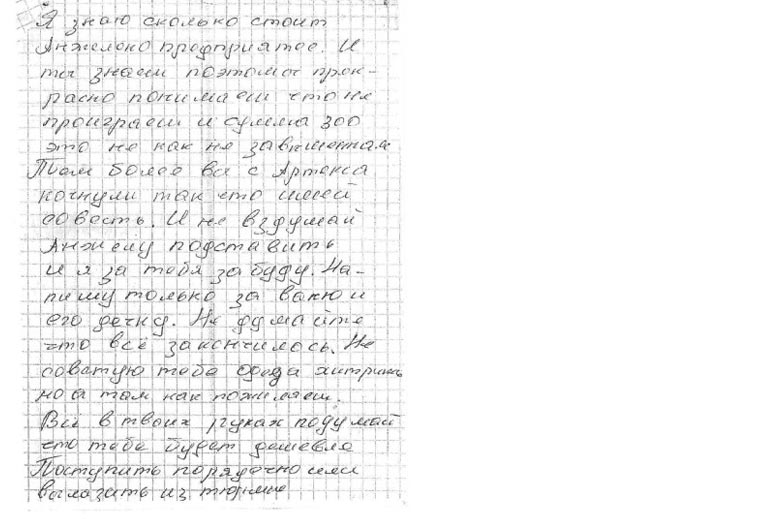 Я знаю сколько стоит
Анжелоно предприятее. И
ты знаеш поэтомы прек-
расно понимаеш что не
проиграеш и сумма 300
это не как не завышенная
Тем более вы с Артенса
кочнули так что имей
совесть. И не вздумай
Анжелу подставить
и я за тебя забуду. На-
пишу только за ваню и
его дечку. Не думайте
что всё закончилось. Не
советую тебе хитрить
но а там как пожилаеш.
Всё в твоих руках подумай
что тебе будет дешевле
Поступить порядочно или
вылазить из тюрмы